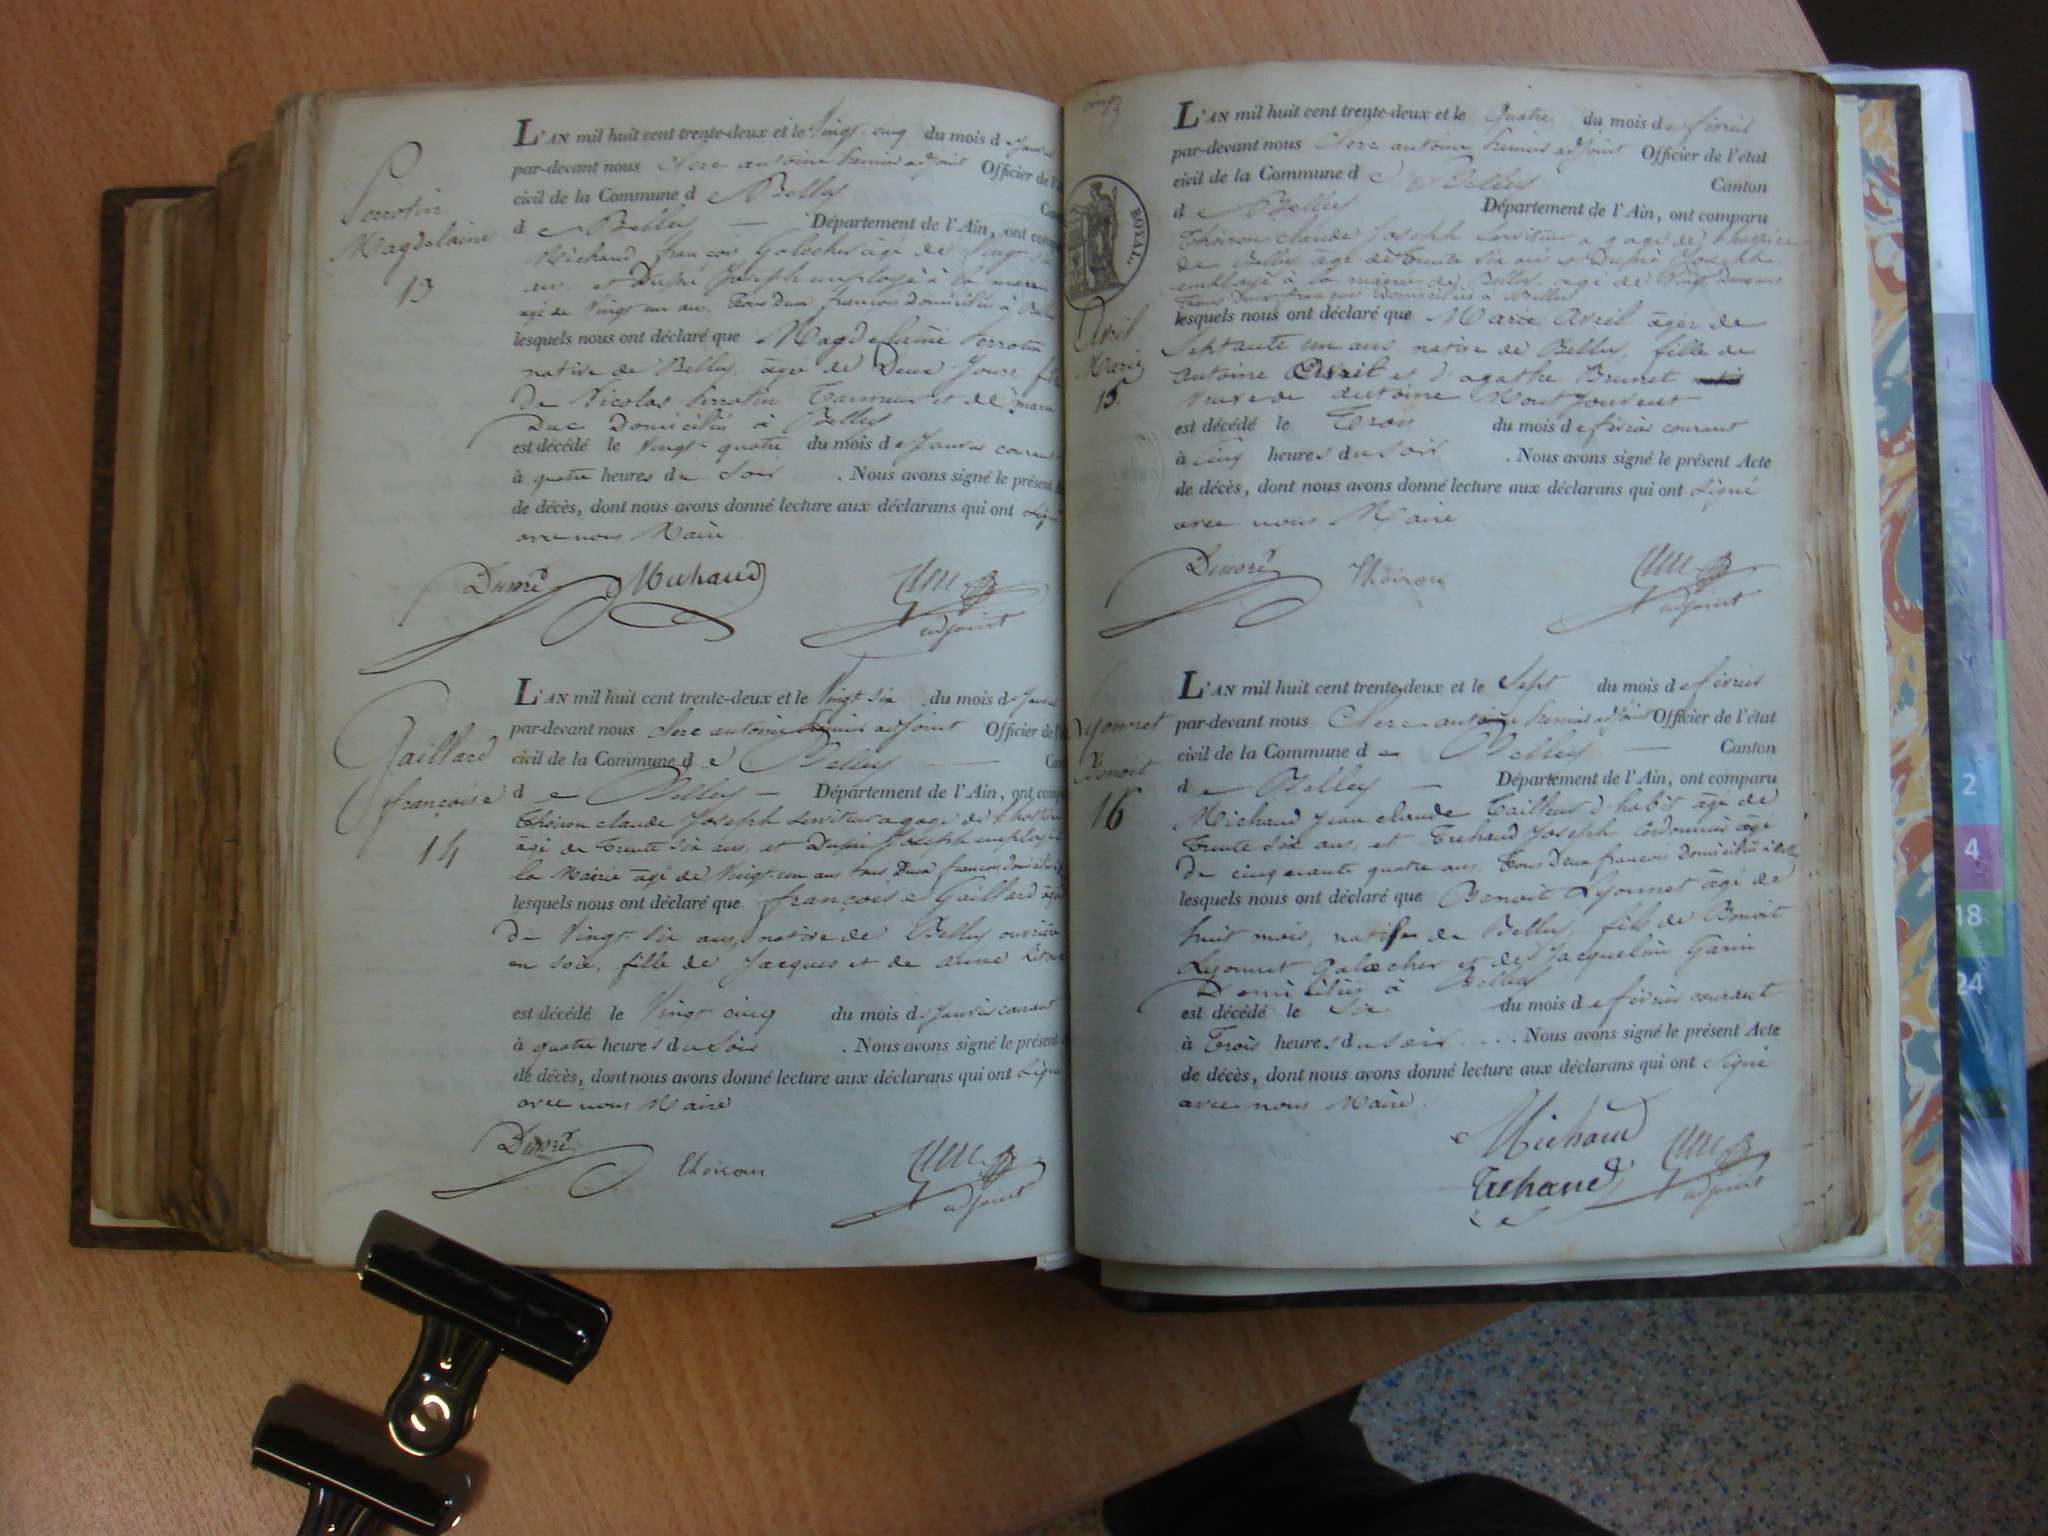 Perrotin
Magdelaine
13
L'AN mil huit cent trente-deux et le Vingt-cinq du mois de Janvier
par-devant nous Clerc antoine premier adjoint Officier de l'
civil de la Commune de Belley
de Belley — Département de l'Ain, ont comp
Michaud françois Galocher âgé de Vingt
ans et Dupré Joseph employé à la
âgé de Vingt un ans, Tous Deux françois Domiciliés à
lesquels nous ont déclaré que Magdelaine Perrotin
native de Belley, âgée de Deux Jours,
De Nicolas Perrotin Tanneur et de marie
Duc Domiciliés à Belley
est décédé le Vingt-quatre du mois de Janvier courant
à quatre heures du Soir . Nous avons signé le présent
de décès, dont nous avons donné lecture aux déclarans qui ont signé
avec nous Maire
Dupré Michaud Clerc
adjoint
Gaillard
françoise
14
L'AN mil huit cent trente-deux et le Vingt six du mois de Janvier
par-devant nous Clerc antoine premier adjoint Officier de l'
civil de la Commune de Belley —
de Belley — Département de l'Ain, ont comp
Thoiron claude Joseph serviteur a gage de l'
âgé de Trente six ans, et Dupré Joseph employé à
la Mairie âgé de Vingt un ans tous Deux françois
lesquels nous ont déclaré que françoise Gaillard âgée
De Vingt-six ans, native de Belley ouvrière
en soie, fille de Jacques et de anne
est décédé le Vingt cinq du mois de Janvier courant
à quatre heures du soir . Nous avons signé le présent
de décès, dont nous avons donné lecture aux déclarans qui ont signé
avec nous Maire
Dupré Thoiron Clerc
adjoint
cinq
ROYAL
Avril
Marie
15.
L'AN mil huit cent trente-deux et le Quatre du mois de février
par-devant nous Clerc antoine premier adjoint Officier de l'état
civil de la Commune de Belley Canton
de Belley Département de l'Ain, ont comparu
Thoiron claude Joseph serviteur a gage de l'hospice
de Belley âgé de Trente six ans et Dupré Joseph
employé à la mairie de Belley âgé de Vingt Deux ans
Tous Deux françois Domiciliés à Belley
lesquels nous ont déclaré que Marie Avril âgée de
Septante un ans native de Belley, fille de
Antoine Avril et d'agathe Brunet
Veuve de Antoine Montjouvent
est décédé le Trois du mois de février courant
à Cinq heures du soir . Nous avons signé le présent Acte
de décès, dont nous avons donné lecture aux déclarans qui ont Signé
avec nous Maire
Dupré Thoiron Clerc
adjoint
Lyonnet
Benoit
16
L'AN mil huit cent trente-deux et le Sept du mois de février
par-devant nous Clerc antoine premier adjoint Officier de l'état
civil de la Commune de Belley — Canton
de Belley — Département de l'Ain, ont comparu
Michaud Jean claude Tailleur d'habit âgé de
Trente six ans, et Trehand Joseph Cordonnier âgé
De cinquante quatre ans Tous Deux françois Domiciliés à Belley
lesquels nous ont déclaré que Benoit Lyonnet âgé de
huit mois, natif de Belley, fils de Benoit
Lyonnet Galocher et de Jacqueline Garin
Domiciliés à Belley
est décédé le Six du mois de février courant
à Trois heures du soir . . . . Nous avons signé le présent Acte
de décès, dont nous avons donné lecture aux déclarans qui ont Signé
avec nous Maire.
Michaud
Trehand Clerc
adjoint
2
4
18
24